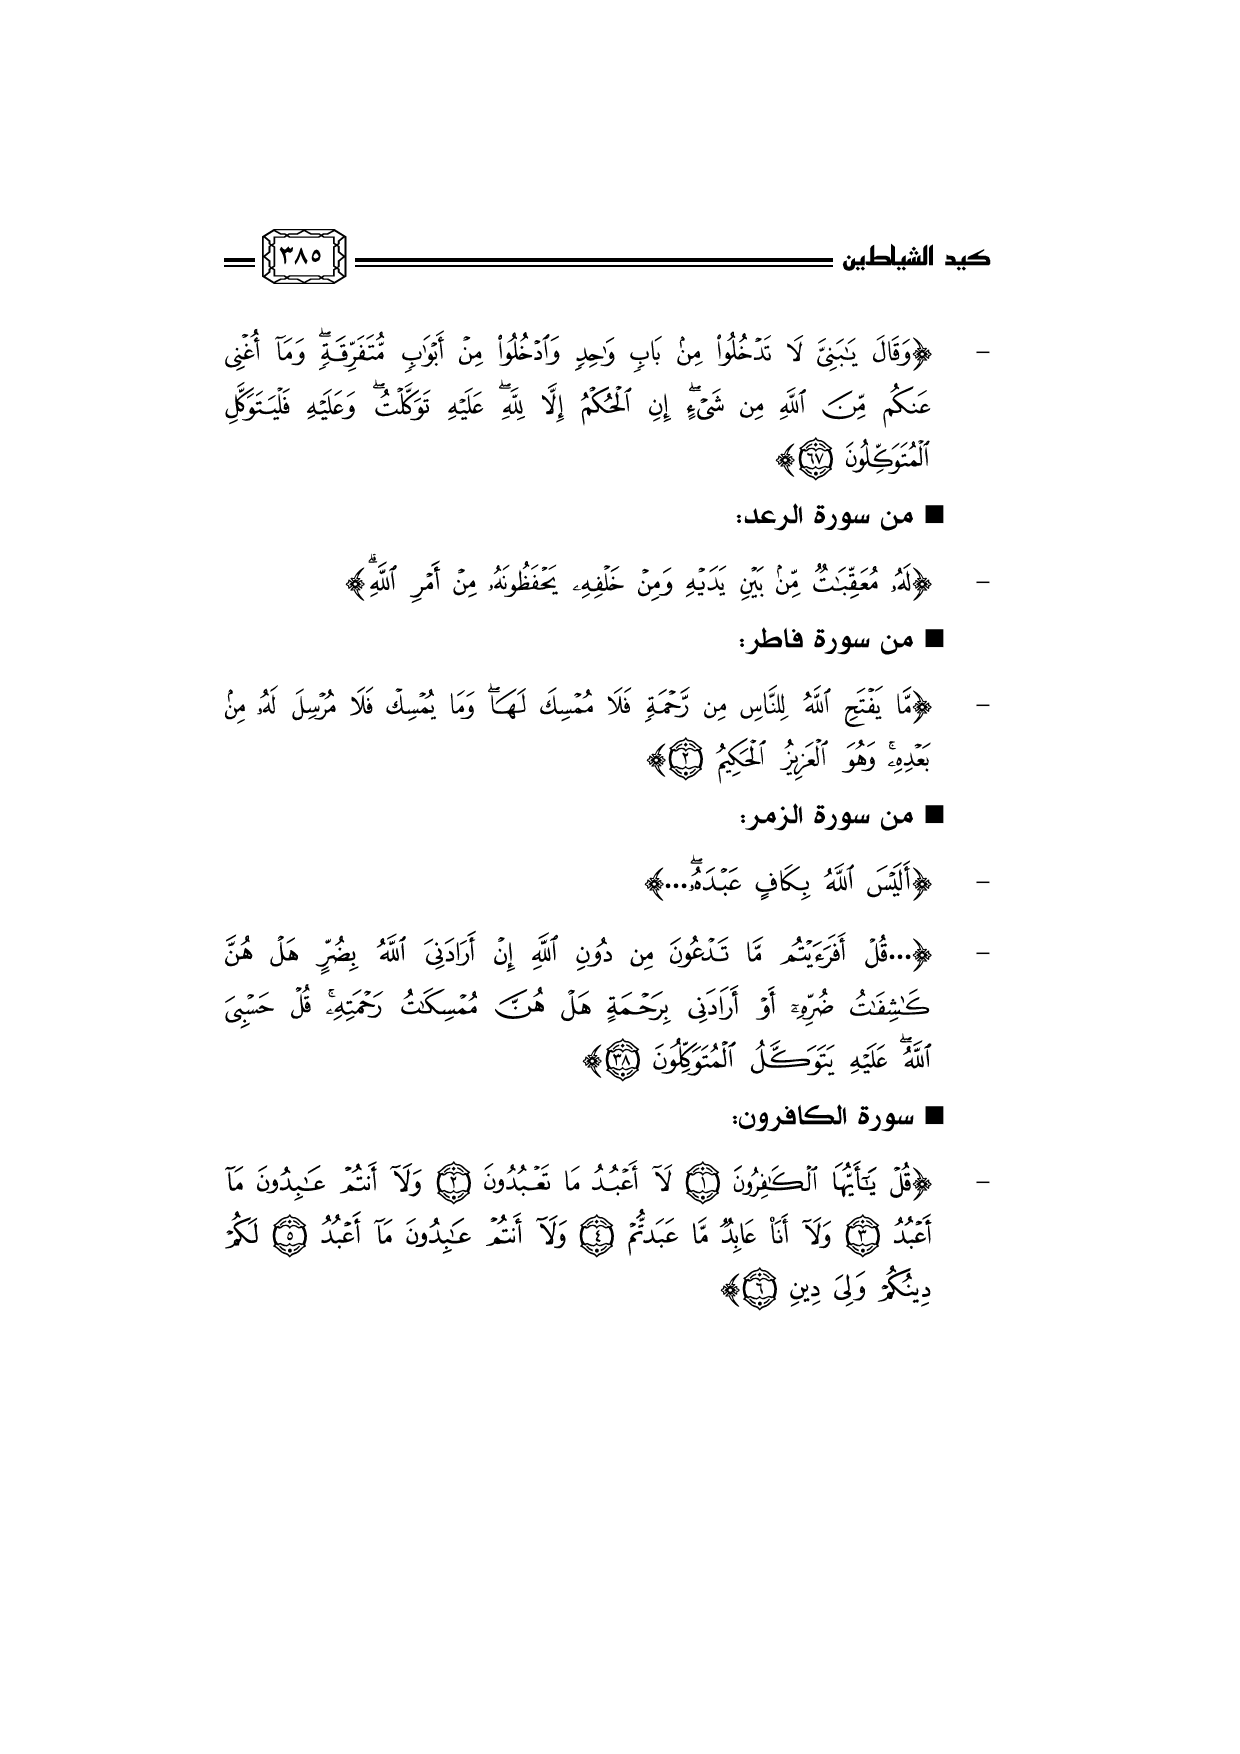 كيد الشياطين ٣٨٥
- ﴿وَقَالَ يَٰبَنِيَّ لَا تَدۡخُلُواْ مِنۢ بَابٖ وَٰحِدٖ وَٱدۡخُلُواْ مِنۡ أَبۡوَٰبٖ مُّتَفَرِّقَةٖۖ وَمَآ أُغۡنِي
عَنكُم مِّنَ ٱللَّهِ مِن شَيۡءٍۖ إِنِ ٱلۡحُكۡمُ إِلَّا لِلَّهِۖ عَلَيۡهِ تَوَكَّلۡتُۖ وَعَلَيۡهِ فَلۡيَتَوَكَّلِ
ٱلۡمُتَوَكِّلُونَ ٦٧﴾
■ من سورة الرعد:
- ﴿لَهُۥ مُعَقِّبَٰتٞ مِّنۢ بَيۡنِ يَدَيۡهِ وَمِنۡ خَلۡفِهِۦ يَحۡفَظُونَهُۥ مِنۡ أَمۡرِ ٱللَّهِۗ﴾
■ من سورة فاطر:
- ﴿مَّا يَفۡتَحِ ٱللَّهُ لِلنَّاسِ مِن رَّحۡمَةٖ فَلَا مُمۡسِكَ لَهَاۖ وَمَا يُمۡسِكۡ فَلَا مُرۡسِلَ لَهُۥ مِنۢ
بَعۡدِهِۦۚ وَهُوَ ٱلۡعَزِيزُ ٱلۡحَكِيمُ ٢﴾
■ من سورة الزمر:
- ﴿أَلَيۡسَ ٱللَّهُ بِكَافٍ عَبۡدَهُۥۖ...﴾
- ﴿...قُلۡ أَفَرَءَيۡتُم مَّا تَدۡعُونَ مِن دُونِ ٱللَّهِ إِنۡ أَرَادَنِيَ ٱللَّهُ بِضُرٍّ هَلۡ هُنَّ
كَٰشِفَٰتُ ضُرِّهِۦٓ أَوۡ أَرَادَنِي بِرَحۡمَةٍ هَلۡ هُنَّ مُمۡسِكَٰتُ رَحۡمَتِهِۦۚ قُلۡ حَسۡبِيَ
ٱللَّهُۖ عَلَيۡهِ يَتَوَكَّلُ ٱلۡمُتَوَكِّلُونَ ٣٨﴾
■ سورة الكافرون:
- ﴿قُلۡ يَٰٓأَيُّهَا ٱلۡكَٰفِرُونَ ١ لَآ أَعۡبُدُ مَا تَعۡبُدُونَ ٢ وَلَآ أَنتُمۡ عَٰبِدُونَ مَآ
أَعۡبُدُ ٣ وَلَآ أَنَا۠ عَابِدٞ مَّا عَبَدتُّمۡ ٤ وَلَآ أَنتُمۡ عَٰبِدُونَ مَآ أَعۡبُدُ ٥ لَكُمۡ
دِينُكُمۡ وَلِيَ دِينِ ٦﴾